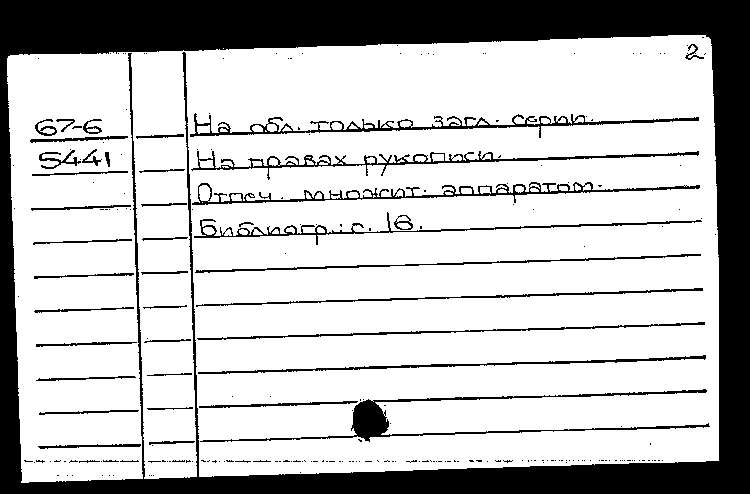 2
67-6 На обл. только загл. серии.
5441 На правах рукописи.
Отпеч. множит. аппаратом.
Библиогр.: с. 16.